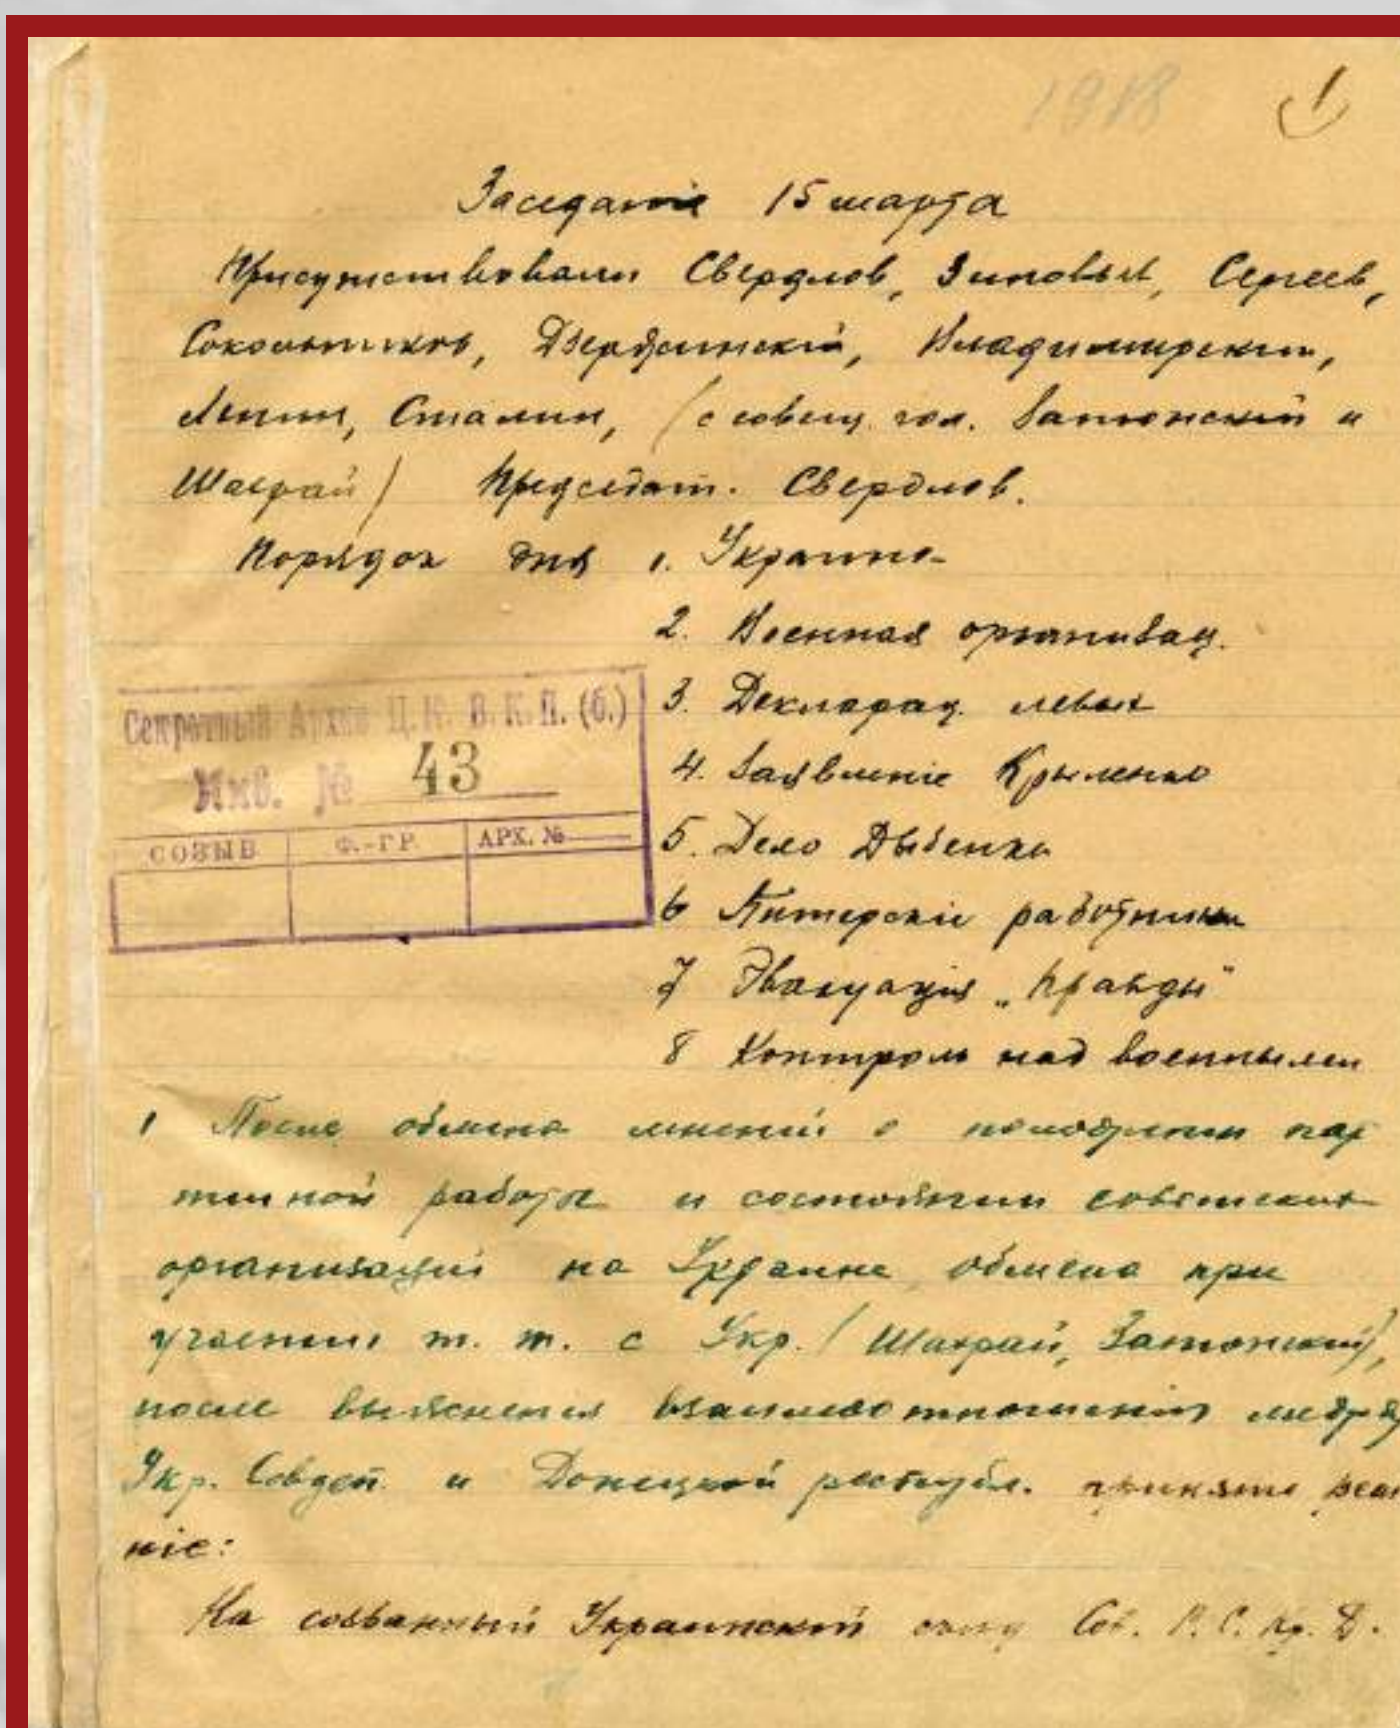 1918
1
Заседание 15 марта
Присутствовали Свердлов, Зиновьев, Сергеев,
Сокольников, Дзержинский, Владимирский,
Ленин, Сталин, (с совещ. гол. Затонский и
Шахрай) Председат. Свердлов.
Порядок дня 1. Украина
2. Военная организац.
3. Декларац. левых
4. Заявленіе Крыленко
5. Дело Дыбенко
6 Питерскіе работники
7 Эвакуація „Правды"
8 Контроль над военными
Секретный Архив Ц. К. В. К. П. (б.)
Инв. № 43
СОЗЫВ Ф.-ГР. АРХ. №
1 После обмена мнений о положении пар
тийной работы и состоянии советских
организаций на Украине, обмена при
участии т. т. с Укр. (Шахрай, Затонский),
после выяснения взаимоотношений между
Укр. Совдеп. и Донецкой республ. принято реше
ніе:
На созванный Украинский съезд Сов. Р. С. Кр. Д.